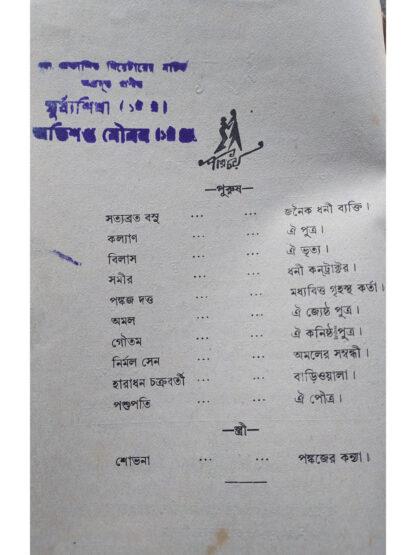 সূর্য্যশিখা
অভিশপ্ত যৌবন
পরিচয়
—পুরুষ—
সত্যব্রত বসু ... ... জনৈক ধনী ব্যক্তি।
কল্যাণ ... ... ঐ পুত্র।
বিলাস ... ... ঐ ভৃত্য।
সমীর ... ... ধনী কনট্রাক্টর।
পঙ্কজ দত্ত ... ... মধ্যবিত্ত গৃহস্থ কর্তা।
অমল ... ... ঐ জ্যেষ্ঠ পুত্র।
গৌতম ... ... ঐ কনিষ্ঠ পুত্র।
নির্মল সেন ... ... অমলের সম্বন্ধী।
হারাধন চক্রবর্তী ... ... বাড়িওয়ালা।
পশুপতি ... ... ঐ পৌত্র।
—স্ত্রী—
শোভনা ... ... পঙ্কজের কন্যা।